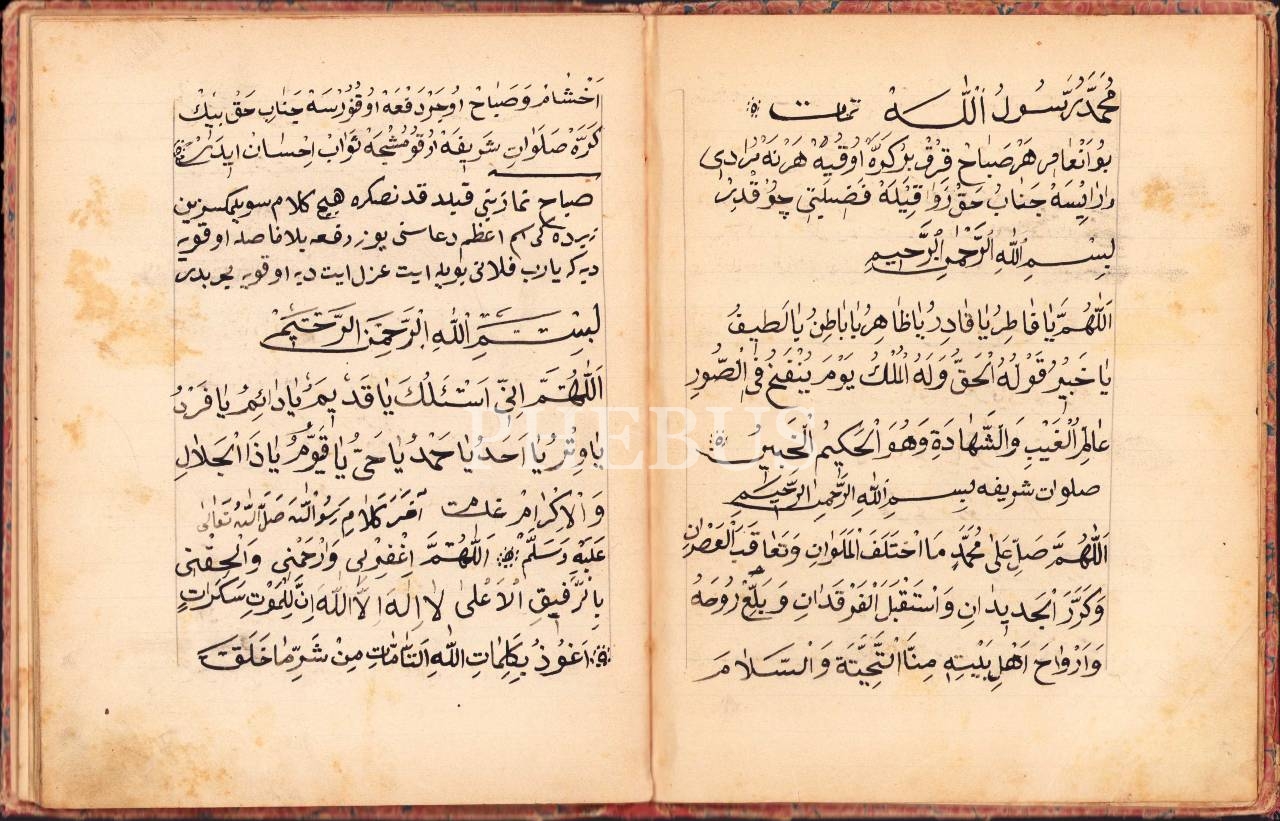 محمد رسول الله تمت
بو انعامی هر صباح قرق بر کره اوقیه هر نه مرادی
وار ایسه جناب حق روا قیله فضیلتی چوقدر
بسم الله الرحمن الرحيم
اَللّٰهُمَّ يَا فَاطِرُ يَا قَادِرُ يَا ظَاهِرُ يَا بَاطِنُ يَا لَطِيفُ
يَا خَبِيرُ قَوْلُهُ الْحَقُّ وَلَهُ الْمُلْكُ يَوْمَ يُنْفَخُ فِى الصُّورِ
عَالِمُ الْغَيْبِ وَالشَّهَادَةِ وَهُوَ الْحَكِيمُ الْخَبِيرُ
صلوات شريفه بسم الله الرحمن الرحيم
اَللّٰهُمَّ صَلِّ عَلٰى مُحَمَّدٍ مَا اخْتَلَفَ الْمَلَوَانِ وَتَعَاقَبَ الْعَصْرَانِ
وَكَرَّرَ الْجَدِيدَانِ وَاسْتَقْبَلَ الْفَرْقَدَانِ وَبَلِّغْ رُوحَهُ
وَاَرْوَاحَ اَهْلِ بَيْتِهِ مِنَّا التَّحِيَّةَ وَالسَّلَامَ
اخشام و صباح اوچر دفعه اوقورسه جناب حق بیك
كره صلوات شريفه اوقومشجه ثواب احسان ايدر
صباح نمازينى قيلدقدنصكره هيچ كلام سويلمكسزين
زيرده كى اسم اعظم دعاسنى يوز دفعه بلا فاصله اوقويه
ديه كه يارب فلانى بويله ايت عزل ايت ديه اوقويه مجربدر
بسم الله الرحمن الرحيم
اَللّٰهُمَّ اِنِّى اَسْئَلُكَ يَا قَدِيمُ يَا دَائِمُ يَا فَرْدُ
يَا وِتْرُ يَا اَحَدُ يَا حَمْدُ يَا حَىُّ يَا قَيُّومُ يَا ذَا الْجَلَالِ
وَالْاِكْرَامِ تمت آخر كلام رسول الله صلى الله تعالى
عَلَيْهِ وَسَلَّمْ اَللّٰهُمَّ اغْفِرْلِى وَارْحَمْنِى وَالْحِقْنِى
بِالرَّفِيقِ الْاَعْلٰى لَا اِلٰهَ اِلَّا اللّٰهُ اِنَّ لِلْمَوْتِ سَكَرَاتٍ
اَعُوذُ بِكَلِمَاتِ اللّٰهِ التَّامَّاتِ مِنْ شَرِّ مَا خَلَقَ
PHEBUS